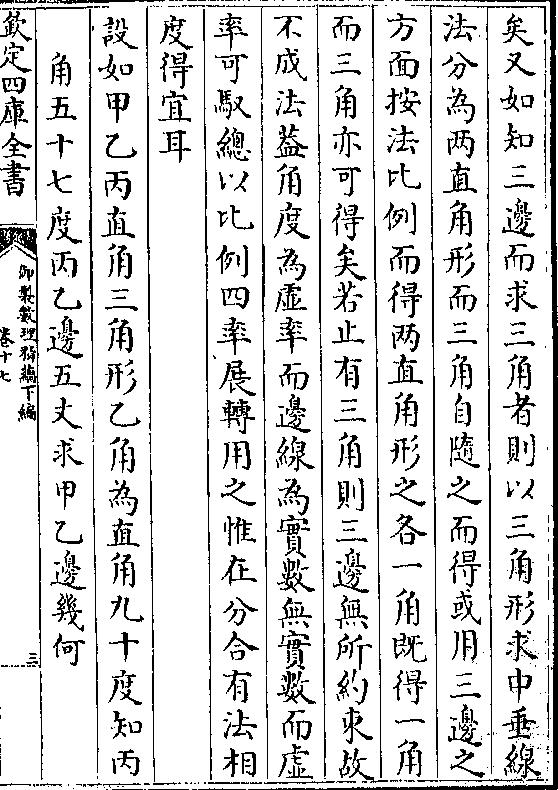 矣又如知三邊而求三角者則以三角形求中垂線
法分為两直角形而三角自隨之而得或用三邊之
方面按法比例而得两直角形之各一角既得一角
而三角亦可得矣若止有三角則三邊無所約束故
不成法葢角度為虛率而邊線為實數無實數而虛
率可馭總以比例四率展轉用之惟在分合有法相
度得宜耳
設如甲乙丙直角三角形乙角為直角九十度知丙
角五十七度丙乙邊五丈求甲乙邊幾何
欽定四庫全書
御製數理精藴下編
卷十七
三